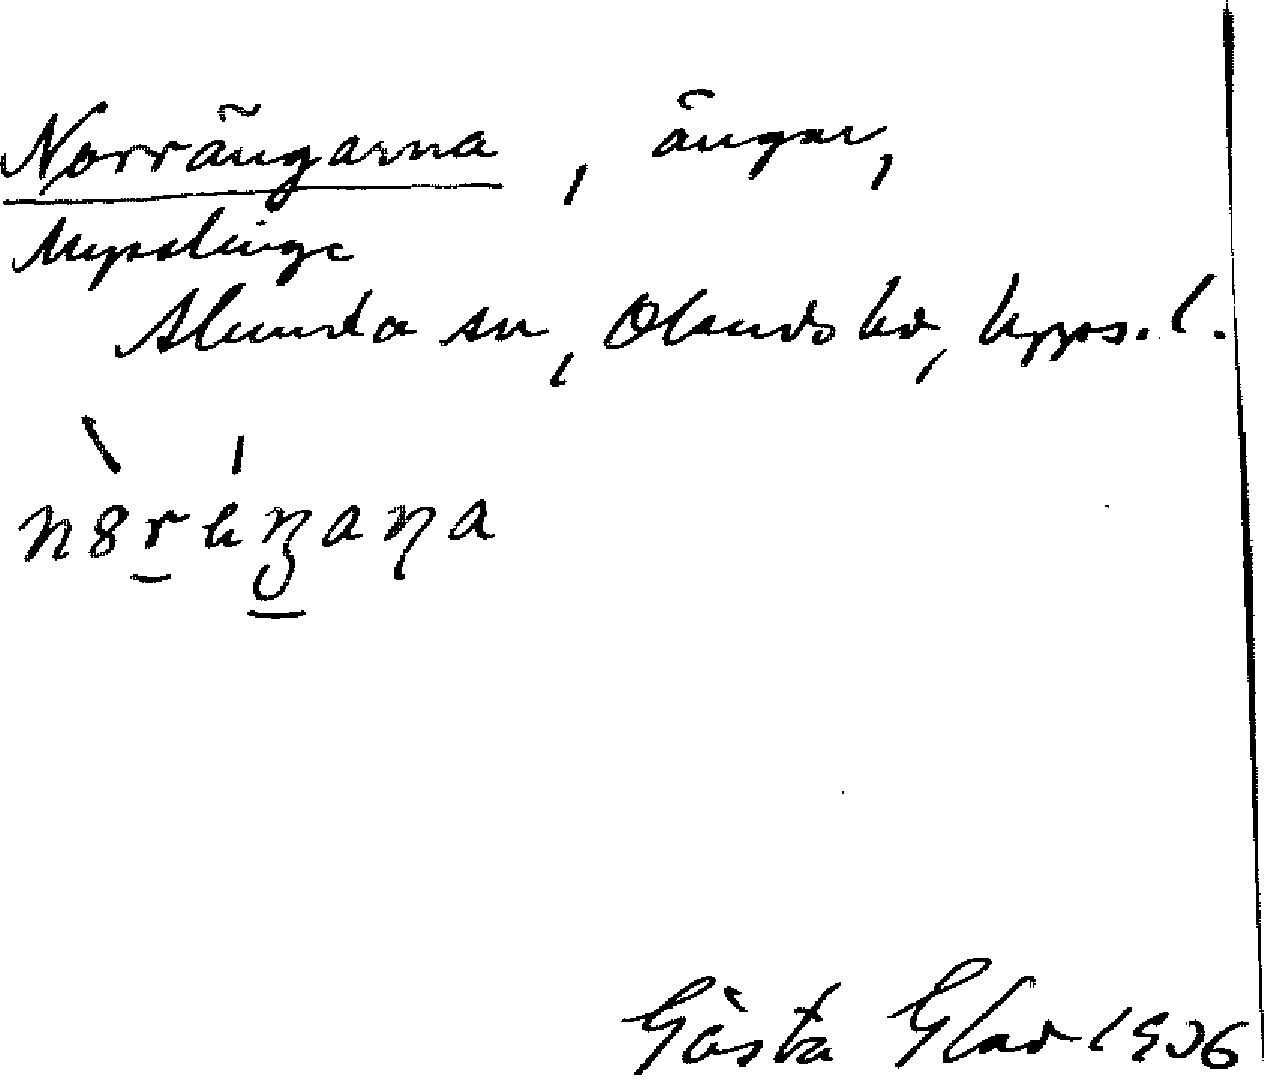 Norrängarna, ängar,
Mysslinge
Alunda sn, Olands hd, Upps. l.
Gösta Glad 1936